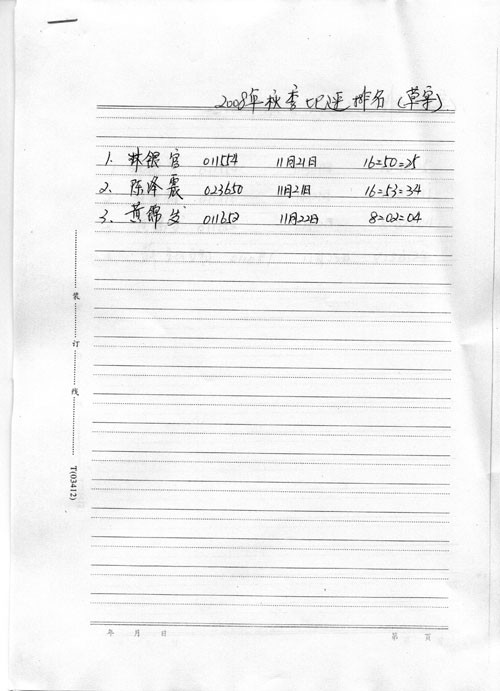 2008年秋季比逐排名（草案）
1. 林银官 011554 11月21日 16=50=25
2. 陈泽震 023650 11月21日 16=53=34
3. 黄锦发 011652 11月22日 8=02=04
装
订
线
T(03412)
年 月 日 第 页